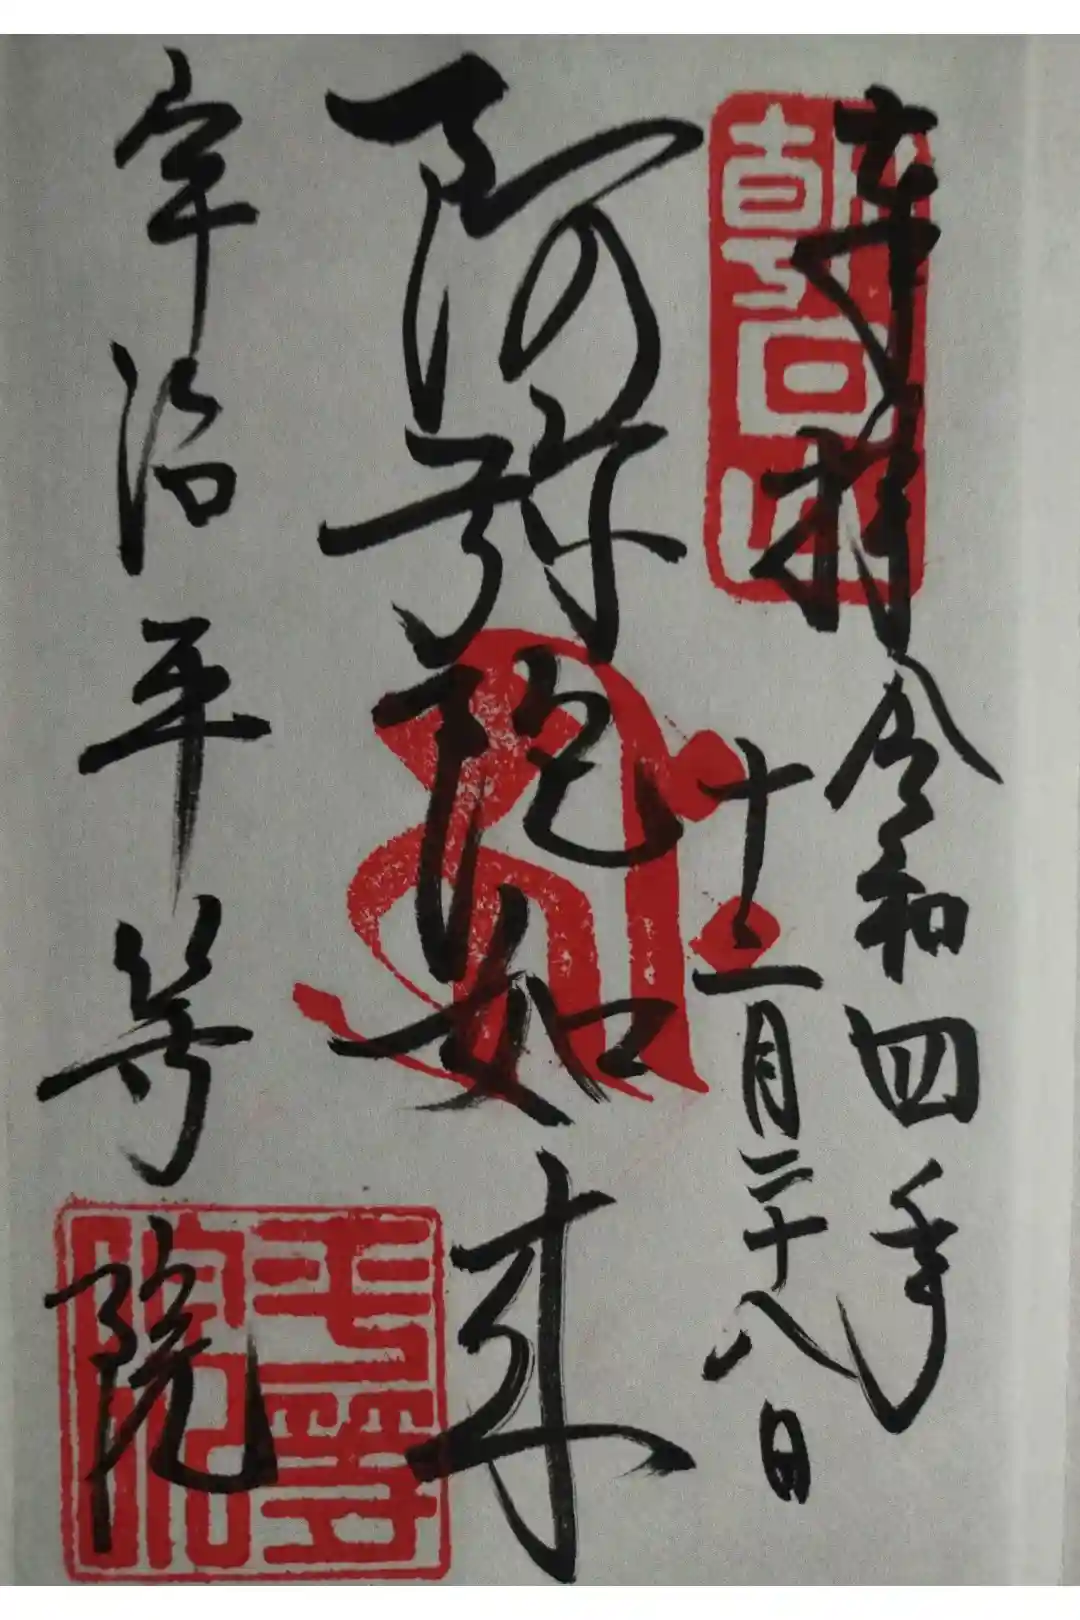 朝日山
奉拝 令和四年
十二月二十八日
阿弥陀如来
宇治平等院
平等院印